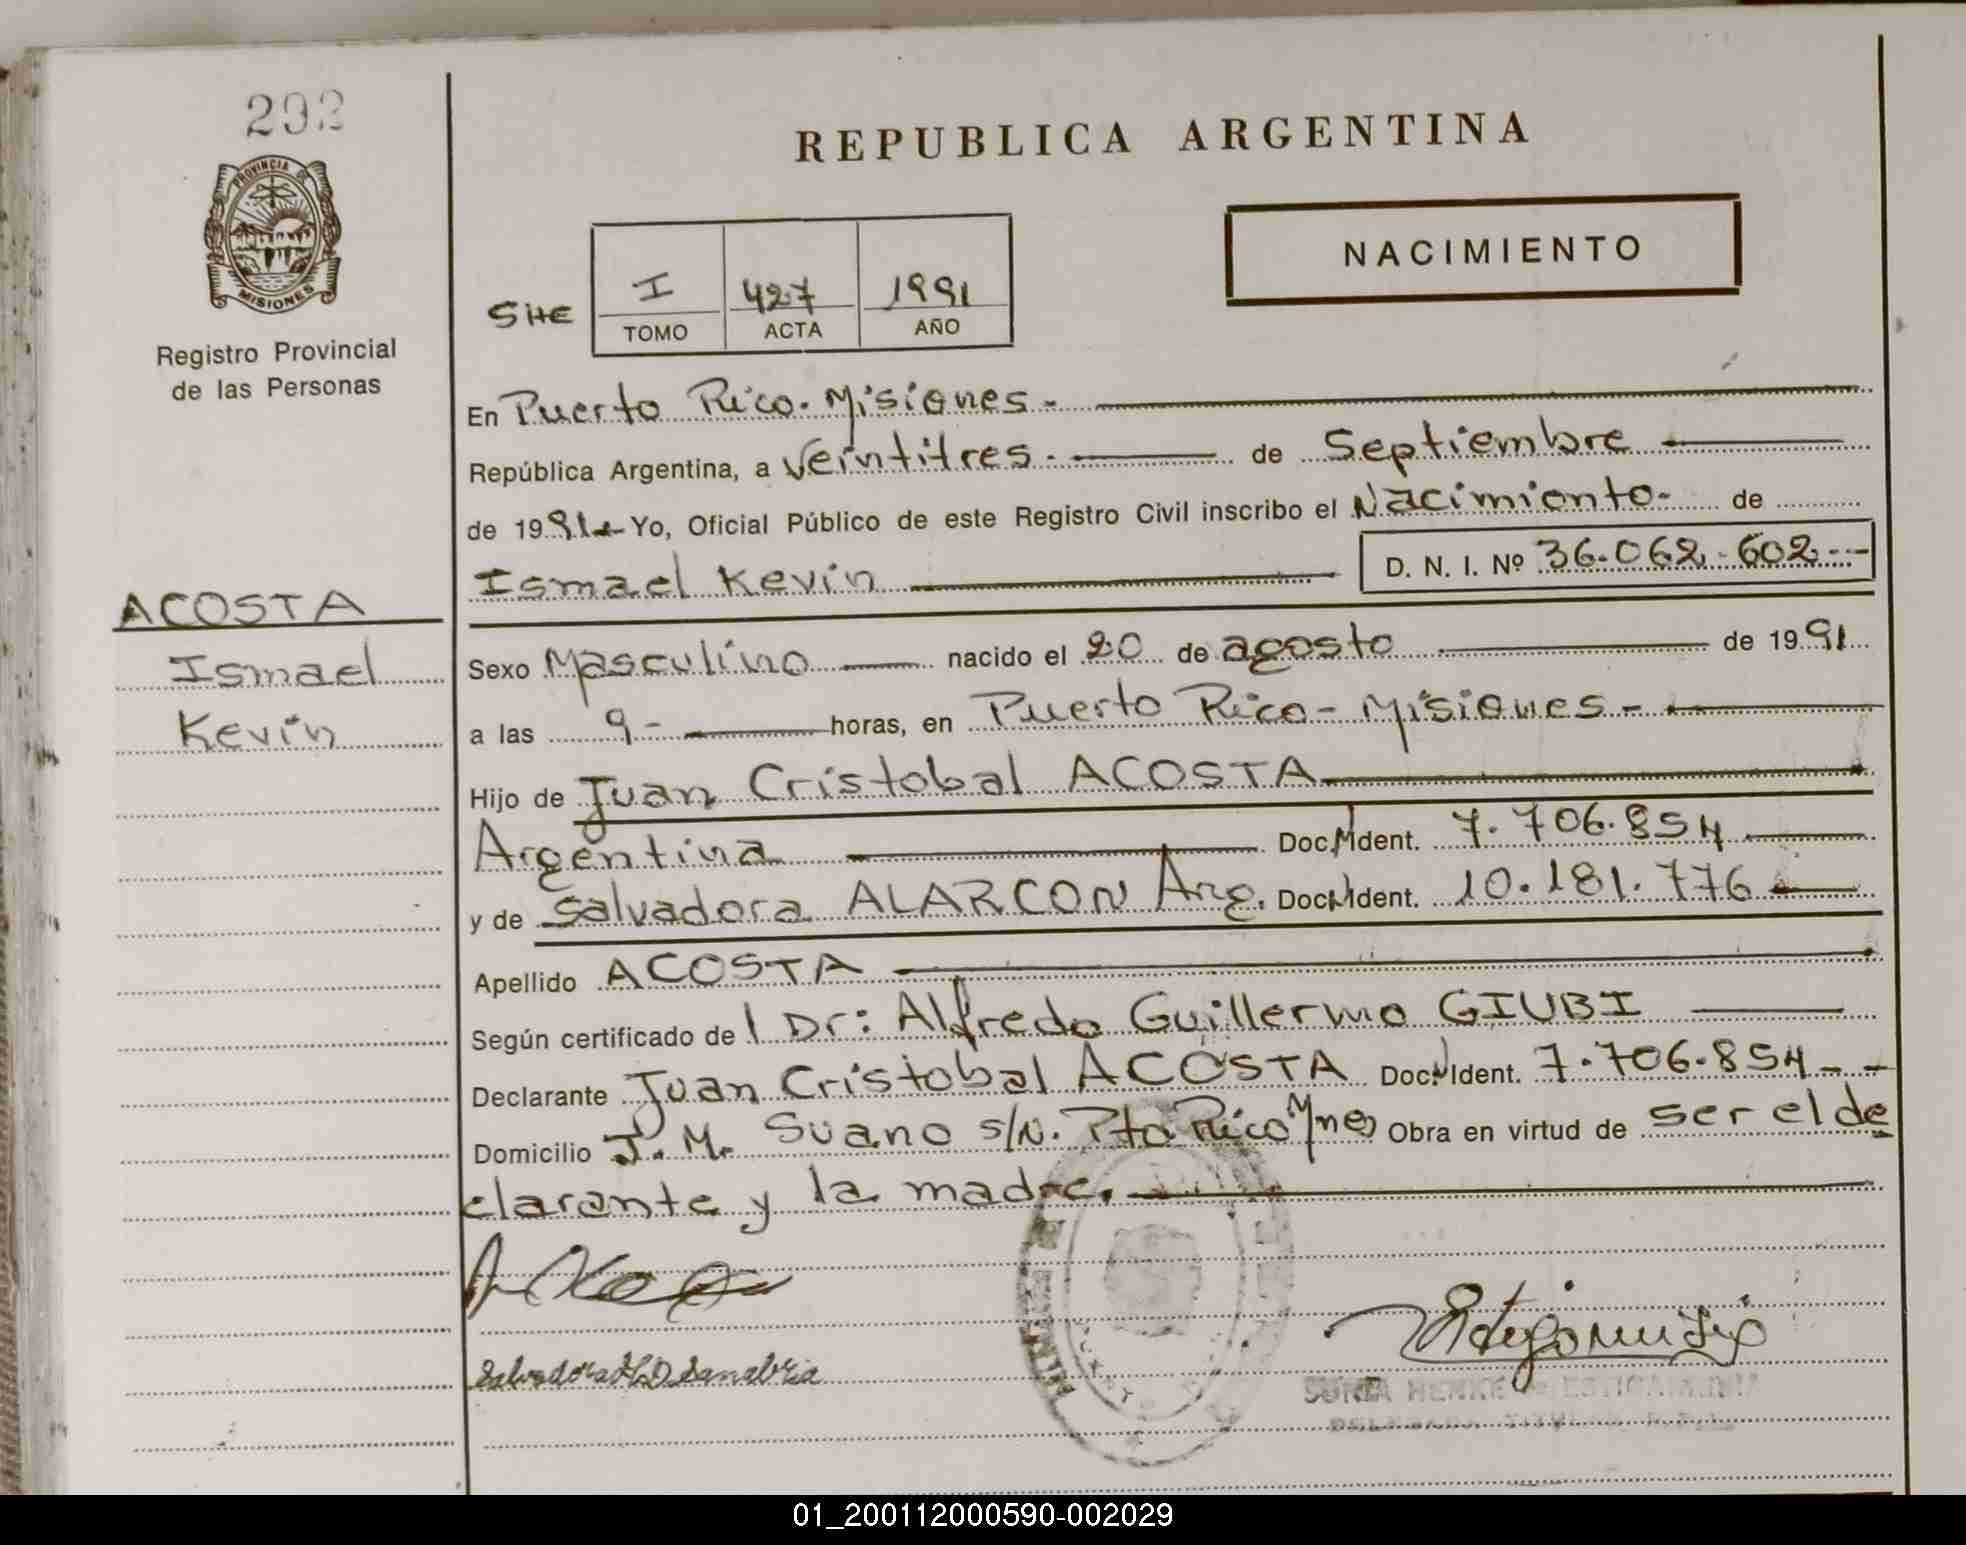 292
PROVINCIA DE
MISIONES
Registro Provincial
de las Personas
ACOSTA
Ismael
Kevin
REPUBLICA ARGENTINA
NACIMIENTO
SHE
I 427 1991
TOMO ACTA AÑO
En Puerto Rico. Misiones -
República Argentina, a veintitres. de Septiembre
de 1991.- Yo, Oficial Público de este Registro Civil inscribo el Nacimiento- de
Ismael Kevin D. N. I. Nº 36.062.602.--
Sexo Masculino nacido el 20 de agosto de 1991
a las 9- horas, en Puerto Rico - Misiones -
Hijo de Juan Cristobal ACOSTA
Argentina Doc. Ident. 7.706.854
y de Salvadora ALARCON Arg. Doc. Ident. 10.181.776
Apellido ACOSTA
Según certificado del Dr: Alfredo Guillermo GIUBI
Declarante Juan Cristobal ACOSTA Doc. Ident. 7.706.854 - -
Domicilio J. M. Suano s/N. Pto Rico Mnes Obra en virtud de ser el de
clarante y la madre.
Sanabria
01_200112000590-002029